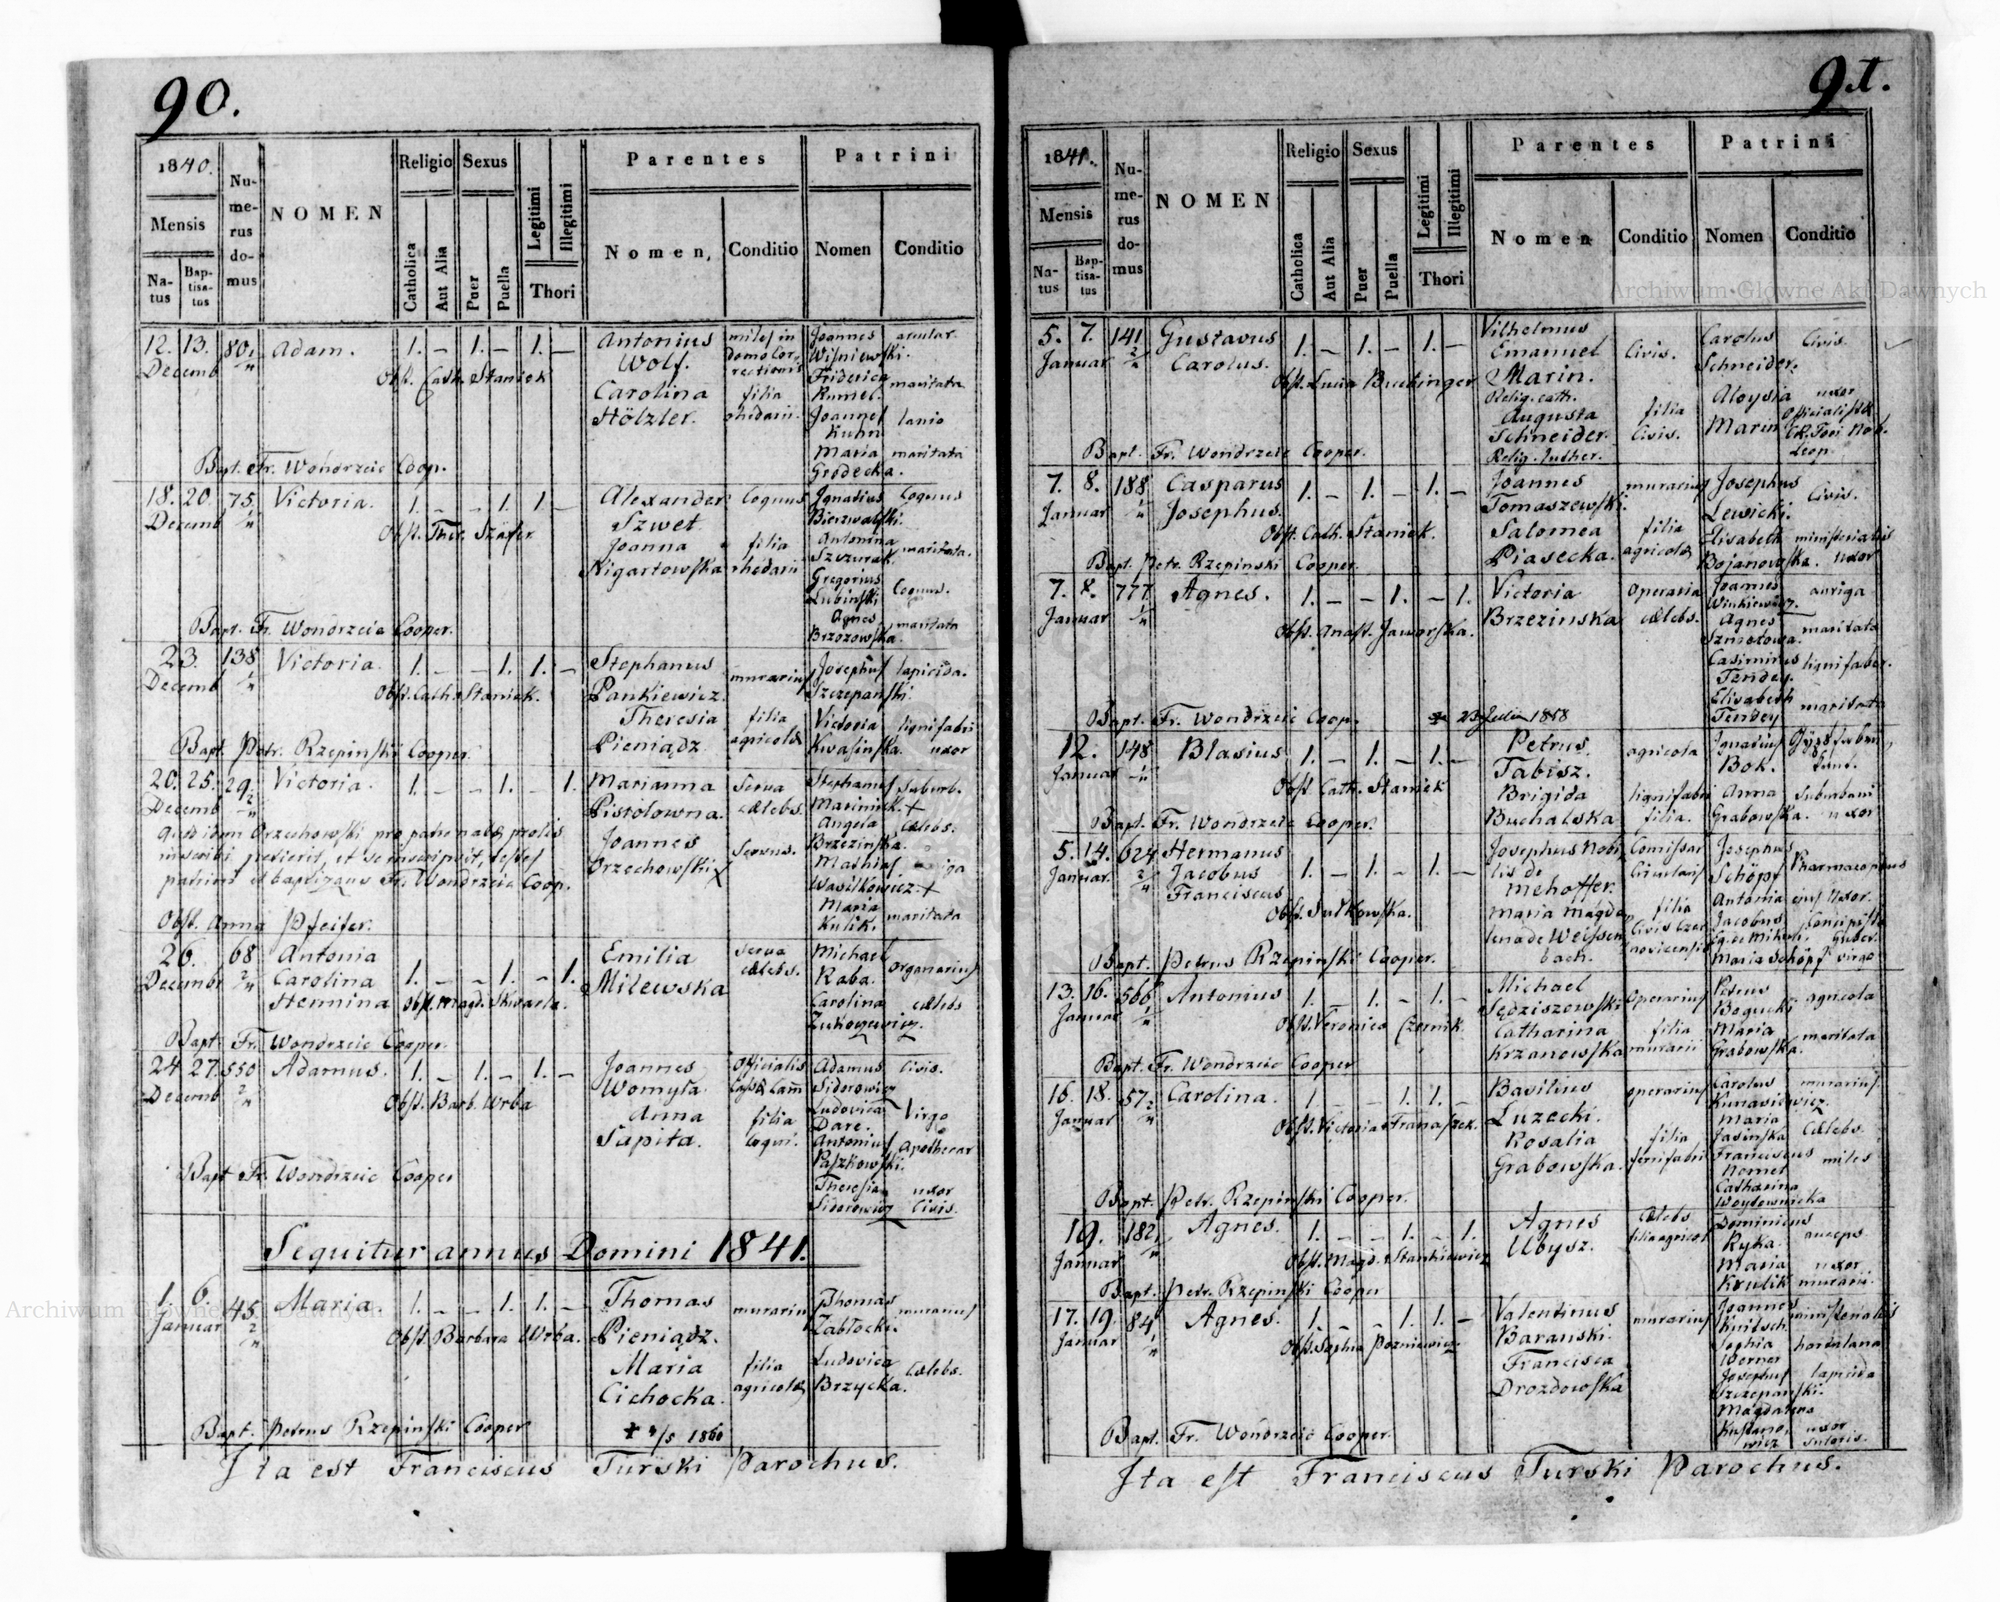 90.
1840.
Mensis
Natus
Baptisatus
Numerus domus
NOMEN
Religio
Catholica
Aut Alia
Sexus
Puer
Puella
Legitimi
Illegitimi
Thori
Parentes
Nomen,
Conditio
Patrini
Nomen
Conditio
12. 13. 80. Adam. 1. – 1. – 1. –
Decemb
Obst. Cath. Staniek
Antonius
Wolf.
Carolina
Hölzler.
miles in
domo Cor-
rectionis
filia
rhedarii.
Joannes
Wiśniewski.
Friderica
Rumel.
Joannes
Kuhn
Maria
Grodecka.
maritata
lanio
maritata
Bapt. Fr. Wondrzeic Coop.
18. 20. 75. Victoria. 1. – – 1. 1. –
Decemb
Obst. Ther. Szafer
Alexander
Szwet.
Joanna
Nigartowska
Coquus
filia
rhedarii
Ignatius
Bierzwalski.
Antonina
Szczurak.
Gregorius
Lubinski
Agnes
Brzozowska.
Coquus
maritata.
Coquus.
maritata
Bapt. Fr. Wondrzeic Cooper.
23. 138 Victoria. 1. – – 1. 1. –
Decemb
Obst. Cath. Staniek.
Stephanus
Pankiewicz.
Theresia
Pieniądz.
murarius
filia
agricolæ
Josephus
Szczepański.
Victoria
Kwasinska.
lapicida.
lignifabri
uxor
Bapt. Petr. Rzepinski Cooper.
20. 25. 29. Victoria. 1. – – 1. – 1.
Decemb
Marianna
Pistolowna.
Joannes
Orzechowski X
Serva
cælebs.
Servus.
Stephanus
Mariniek. +
Angela
Brzezinska.
Mathias
Wasilkowicz. +
Maria
Kulik.
suburb.
cælebs.
maritata
Quod idem Orzechowski pro patre natæ prolis
inscribi petierit, et se inscripsit, testes
patrini et baptizans Fr. Wondrzeic Coop.
Obst. Anna Pfeifer.
26. 68 Antonia
Decemb Carolina 1. – – 1. – 1.
Hermina Obst. Magd. Skwarla.
Emilia
Milewska
serva
cælebs.
Michael
Raba.
Carolina
organarius
cælebs
Bapt. Fr. Wondrzeic Cooper.
24 27. 550 Adamus. 1. – 1. – 1. –
Decemb
Obst. Barb. Wrba
Joannes
Womyla.
Anna
Sapita.
Officialis
filia
coqui.
Adamus
Sidorowicz
Ludovica
Dare.
Antonius
Paszkowski.
Theresia
Sidorowicz
Civis.
Virgo
Apothecar
uxor
Civis.
Bapt Fr. Wondrzeic Cooper
Sequitur annus Domini 1841.
1. 6. 45. Maria 1. – – 1. 1. –
Januar
Obst. Barbara Wrba.
Thomas
Pieniądz.
Maria
Cichocka.
murarius
filia
agricolæ
Thomas
Zabłocki.
Ludovica
Brzycka.
murarius
Cælebs.
Bapt. Petrus Rzepinski Cooper
+ 4/5 1860
Ita est Franciscus Turski Parochus.
91.
1841.
Mensis
Natus
Baptisatus
Numerus domus
NOMEN
Religio
Catholica
Aut Alia
Sexus
Puer
Puella
Legitimi
Illegitimi
Thori
Parentes
Nomen
Conditio
Patrini
Nomen
Conditio
5. 7. 141 Gustavus 1. – 1. – 1. –
Januar Carolus.
Obst. Lucia Buchinger
Vilhelmus
Emanuel
Marin.
Relig. cath.
Augusta
Schneider.
Relig. luther.
Civis.
filia
Civis.
Carolus
Schneider.
Aloysia
Marin
Civis.
uxor
Officialistæ
Leop.
Bapt. Fr. Wondrzeic Cooper.
7. 8. 188 Casparus 1. – 1. – 1. –
Januar Josephus.
Obst. Cath. Staniek.
Joannes
Tomaszewski.
Salomea
Piasecka.
murarius
filia
agricolæ
Josephus
Lewicki.
Elisabeth
Bojanowska.
Civis.
ministerialis
uxor
Bapt. Petr. Rzepinski Cooper.
7. 8. 777 Agnes. 1. – – 1. – 1.
Januar
Obst. Anast. Jaworska.
Victoria
Brzezinska
Operaria
cælebs.
Joannes
Winkiewicz.
Agnes
Szmotowa.
Casimirus
Tendey.
Elisabeth
Tendey
auriga
maritata
lignifaber.
maritata
Bapt. Fr. Wondrzeic Coop.
12. 148 Blasius 1. – 1. – 1. –
Januar
Obst. Cath. Staniek
Petrus
Tabisz.
Brigida
Buchalska
agricola
lignifabri
filia.
Ignatius
Bok.
Anna
Grabowska.
suburbani
uxor
Bapt. Fr. Wondrzeic Cooper.
5. 14. 624 Hermanus
Januar Jacobus 1. – 1. – 1. –
Franciscus
Obst. Sulkowska.
Josephus Nobi-
lis de
Mehoffer.
Maria Magda-
lena de Weissen-
bach.
Comissar
Circularis
filia
Civis Czer
novicensis
Josephus
Schöpf
Antonia
Jacobus
Maria Schöpf
Pharmacopœus
ejus Uxor.
Concipista
Guber.
virgo
Bapt. Petrus Rzepinski Cooper.
13. 16. 566 Antonius 1. – 1. – 1. –
Januar
Obst. Veronica Czernik.
Michael
Sędziszowski
Catharina
Krzanowska
Operarius
filia
murarii
Petrus
Bogucki
Maria
Grabowska.
agricola
maritata
Bapt. Fr. Wondrzeic Cooper
16. 18. 57 Carolina. 1. – – 1. 1. –
Januar
Obst. Victoria Franaszek.
Basilius
Luzecki.
Rosalia
Grabowska.
operarius
filia
ferrifabri
Carolus
Kunasiewicz.
Maria
Jasinska
Franciscus
Nemet
Catharina
Woydownicka
murarius.
Cælebs.
miles
Bapt. Petr. Rzepinski Cooper.
19. 182 Agnes. 1. – – 1. – 1.
Januar
Obst. Magd. Stankiewicz
Agnes
Ubysz.
Cælebs
filia agricol
Dominicus
Ryka.
Maria
Krulik
auceps.
uxor
murarii.
Bapt. Petr. Rzepinski Cooper
17. 19. 84 Agnes. 1. – – 1. 1. –
Januar
Obst. Sophia Pozniewicz.
Valentinus
Baranski.
Francisca
Drozdowska
murarius
Joannes
Knitsch
Sophia
Werner
Josephus
Szczepanski.
Magdalena
ministerialis
hortulana
lapicida
uxor
sutoris.
Bapt. Fr. Wondrzeic Cooper.
Ita est Franciscus Turski Parochus.
Archiwum Główne Akt Dawnych
Archiwum Główne Akt Dawnych